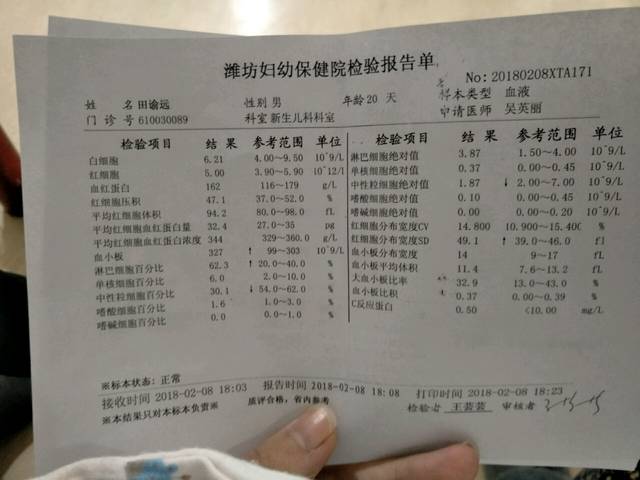 潍坊妇幼保健院检验报告单
No:20180208XTA171
姓 名 田谕远 性别 男 年龄 20 天 样本类型 血液
门 诊 号 610030089 科室 新生儿科科室 申请医师 吴英丽
检验项目 结 果 参考范围 单位 检验项目 结 果 参考范围 单位
白细胞 6.21 4.00~9.50 10^9/L 淋巴细胞绝对值 3.87 1.50~4.00 10^9/L
红细胞 5.00 3.90~5.90 10^12/l 单核细胞绝对值 0.37 0.00~0.45 10^9/L
血红蛋白 162 116~179 g/L 中性粒细胞绝对值 1.87 ↓ 2.00~7.00 10^9/L
红细胞压积 47.1 37.0~52.0 % 嗜酸细胞绝对值 0.10 0.00~0.45 10^9/L
平均红细胞体积 94.2 80.0~98.0 fL 嗜碱细胞绝对值 0.00 0.00~0.20 10^9/L
平均红细胞血红蛋白量 32.4 27.0~35 pg 红细胞分布宽度CV 14.800 10.900~15.400 %
平均红细胞血红蛋白浓度 344 329~360.0 g/L 红细胞分布宽度SD 49.1 ↑ 39.0~46.0 fl
血小板 327 ↑ 99~303 10^9/L 血小板分布宽度 14 9~17 fL
淋巴细胞百分比 62.3 ↑ 20.0~40.0 % 血小板平均体积 11.4 7.6~13.2 fL
单核细胞百分比 6.0 2.0~10.0 % 大血小板比率 32.9 13.0~43.0 %
中性粒细胞百分比 30.1 ↓ 54.0~62.0 % 血小板比积 0.37 0.00~0.39 %
嗜酸细胞百分比 1.6 1.0~3.0 % C反应蛋白 0.50 <10.00 mg/L
嗜碱细胞百分比 0.0 0.0~1.0 %
※标本状态: 正常
接收时间 2018-02-08 18:03 报告时间 2018-02-08 18:08 打印时间 2018-02-08 18:23
※本结果只对本标本负责※ 质评合格,省内参考 检验者 王芸芸 审核者